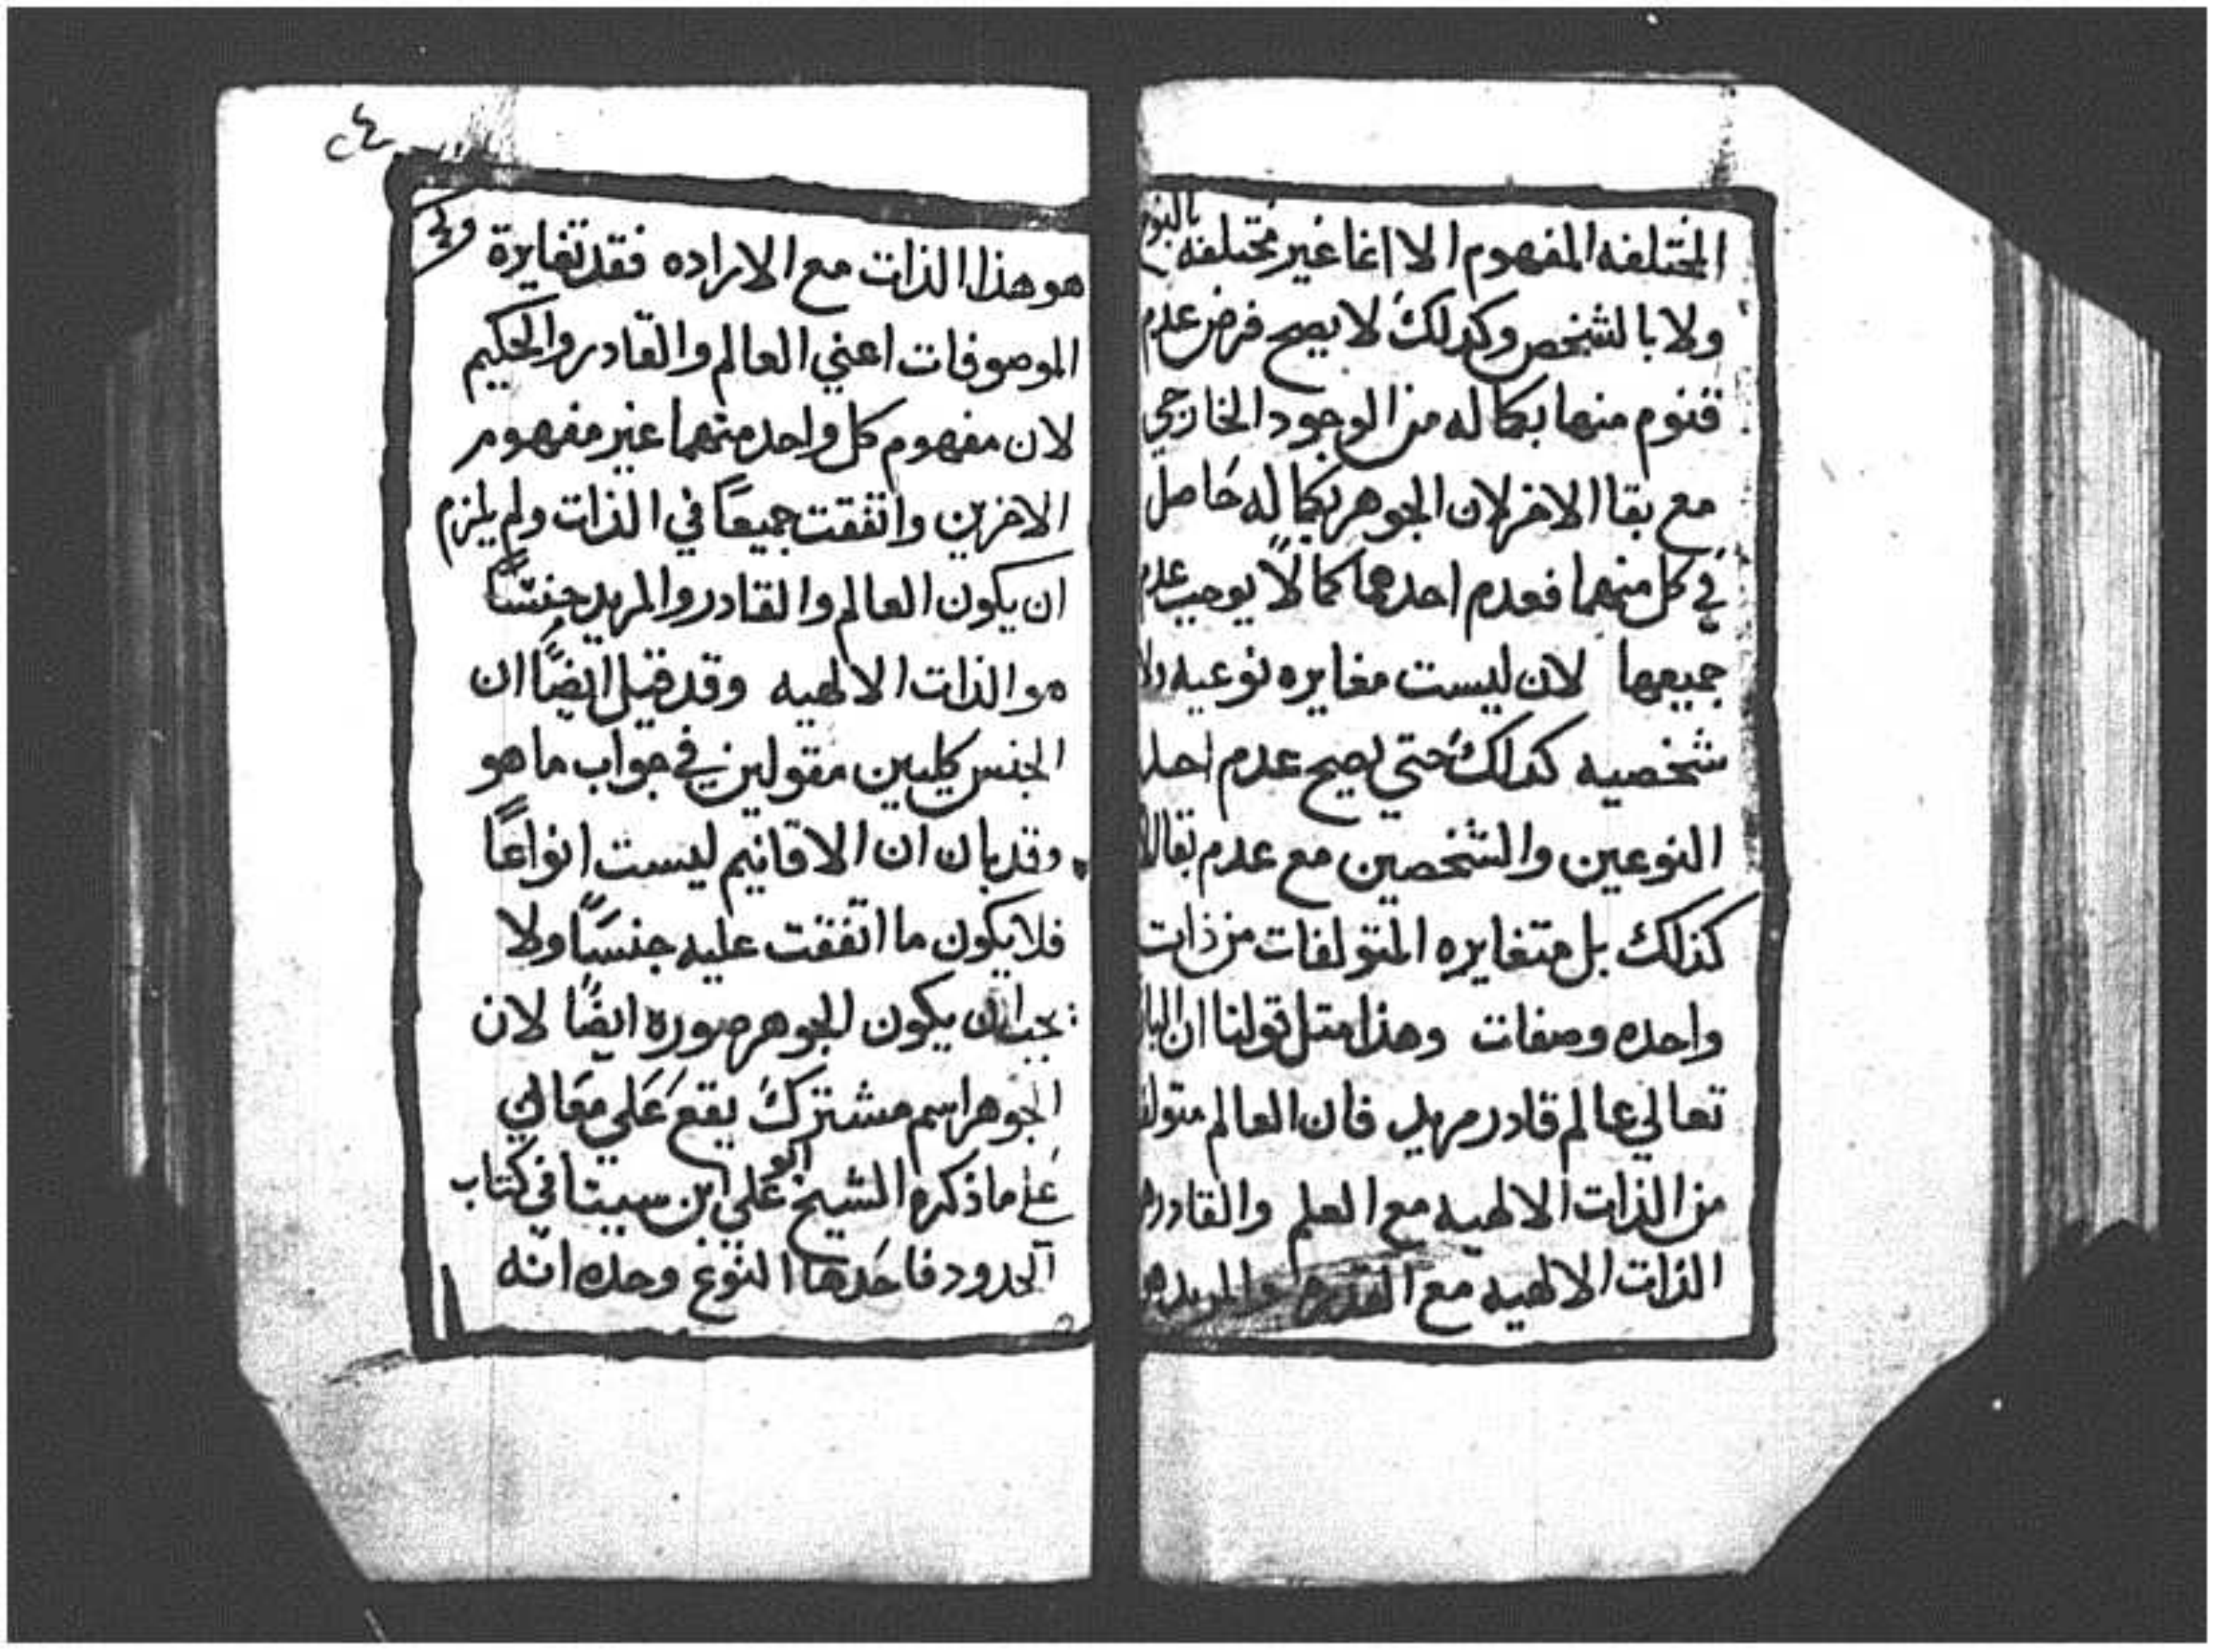 المختلفه المفهوم الا اغا غير مختلفه بالنوع
ولا بالشخص وكذلك لا يصح فرض عدم
قنوم منها بكماله من الوجود الخارجي
مع بقا الاخر لان الجوهر بكماله حَاصل
في كل منهما فعدم احدهما كمالاً يوجب عدم
جميعها لان ليست مغايره نوعيه ولا
شخصيه كذلك حتي يصح عدم احد
النوعين والشخصين مع عدم بقا
كذلك بل متغايره المتولفات من ذات
واحده وصفات وهذا مثل قولنا ان
تعالي عالم قادر مريد فان العالم متولف
من الذات الالهيه مع العلم والقادر
الذات الالهيه مع القدره والمريد
٢٤
هو هذا الذات مع الاراده فقد تغايرة
الموصوفات اعني العالم والقادر والحكيم
لان مفهوم كل واحد منهما غير مفهوم
الاخرين واتفقت جميعًا في الذات ولم يلزم
ان يكون العالم والقادر والمريد جنسًا
هو الذات الالهيه وقد قيل ايضًا ان
الجنس كليين مقولين في جواب ما هو
وقد بان ان الاقانيم ليست انواعًا
فلا يكون ما اتفقت عليه جنسًا ولا
يجب ان يكون الجوهر صوره ايضًا لان
الجوهر اسم مشترك يقع عَلي مَعَاني
علي ما ذكره الشيخ ابو علي ابن سينا في كتاب
الحدود فاحَدها النوع وحده انه